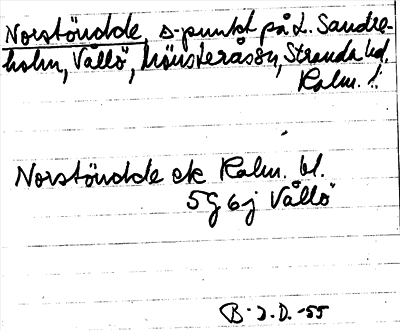 Norstöudde, s-punkt på L. Sandre-
holm, Vållö, Mönsterås sn, Stranda hd,
Kalm. l.
Norstöudde ek Kalm. bl.
5G 6j Vållö
B.J.D. -55